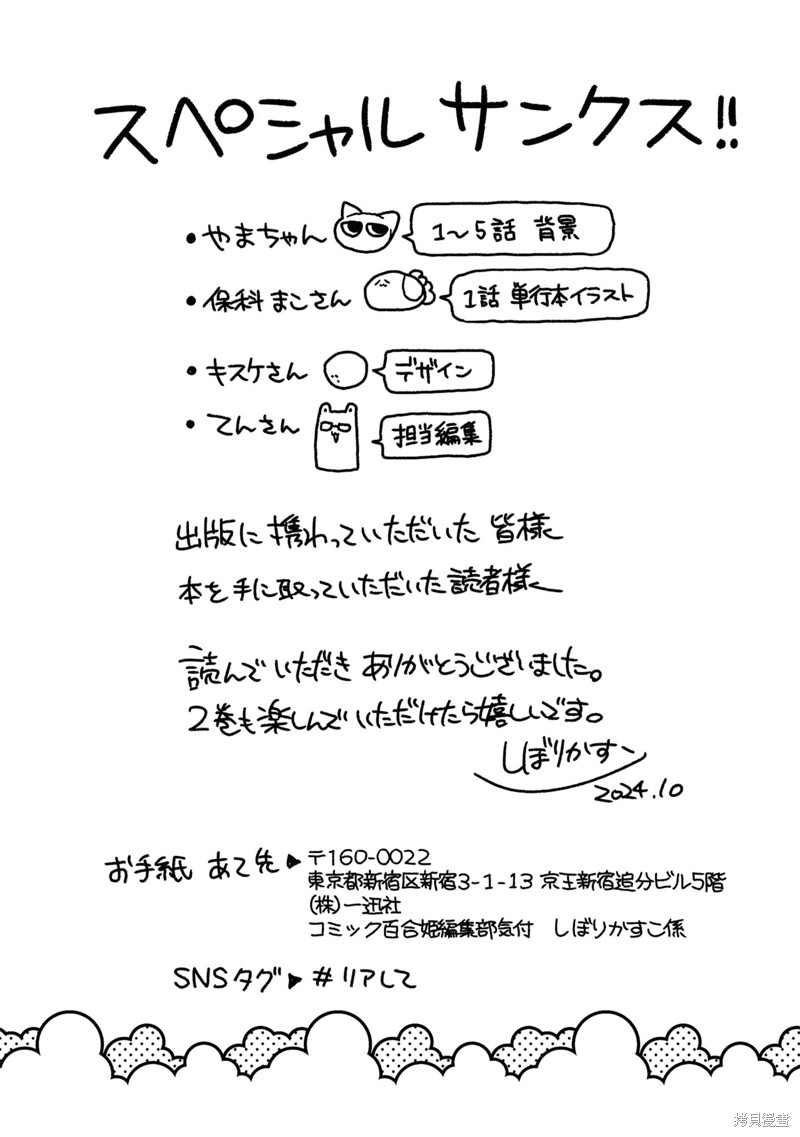 スペシャル サンクス!!
・やまちゃん 1〜5話 背景
・保科まこさん 1話 単行本イラスト
・キスケさん デザイン
・てんさん 担当編集
出版に携わっていただいた 皆様
本を手に取っていただいた読者様
読んでいただき ありがとうございました。
2巻も楽しんでいただけたら嬉しいです。
しぼりかすこ
2024.10
お手紙 あて先▶〒160-0022
東京都新宿区新宿3-1-13 京王新宿追分ビル5階
(株)一迅社
コミック百合姫編集部気付 しぼりかすこ係
SNSタグ▶#リアして
拷貝漫畫